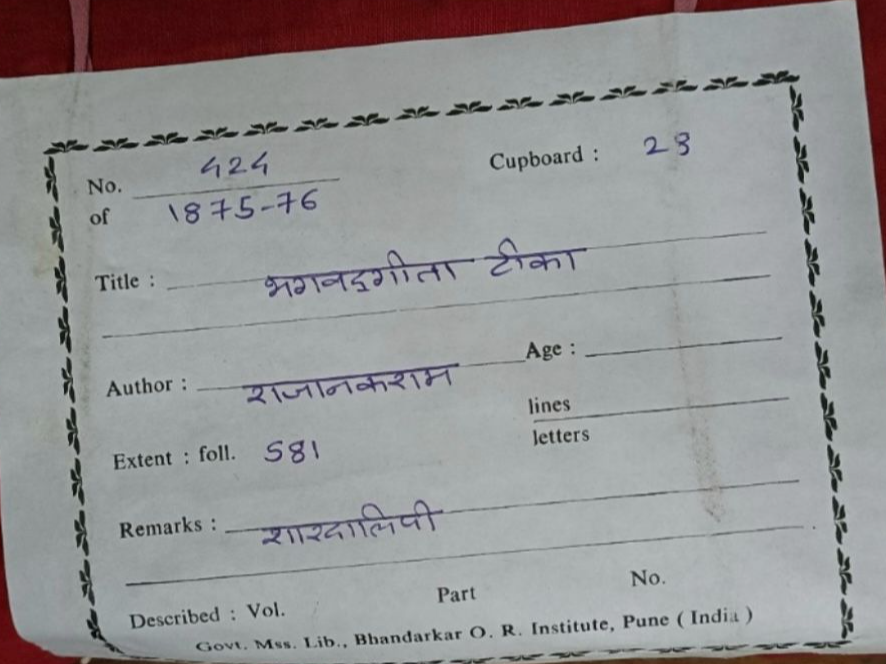 No. 424
Cupboard : 23
of 1875-76
Title : भगवद्गीता टीका
Author : राजानकराम
Age :
lines
letters
Extent : foll. 581
Remarks : शारदालिपी
Described : Vol. Part No.
Govt. Mss. Lib., Bhandarkar O. R. Institute, Pune ( India )